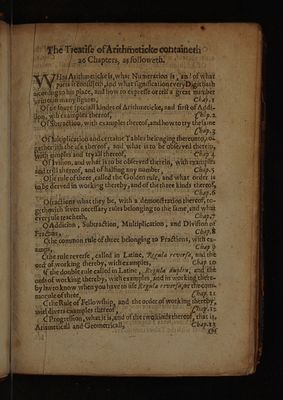 The Treatise of Arithmeticke containeth
26 Chapters, as followeth.
What Arithmeticke is, what Numeration is, and of what
parts it consisteth, and what signification every Digit hath
according to his place, and how to expresse or read a great number
written in many figures, Chap.1
Of the foure speciall kindes of Arithmeticke, and first of Addition,
with examples thereof, Chap.2
Of Substraction, with examples thereof, and how to try the same
Chap.3
Of Multiplication and certaine Tables belonging thereunto, together
with the use thereof, and what is to be observed therein,
with examples and tryall thereof, Chap.4
Of Division, and what is to be observed therein, with examples
and tryall thereof, and of halfing any number, Chap.5
Of the rule of three, called the Golden rule, and what order is
to be observed in working thereby, and of the three kinds thereof,
Chap.6
Of fractions what they be, with a demonstration thereof, together
with seven necessary rules belonging to the same, and what
every rule teacheth, Chap.7
Of Addition, Substraction, Multiplication, and Division of
Fractions, Chap.8
Of the common rule of three belonging to Fractions, with examples,
Chap.9
Of the rule reverse, called in Latine, Regula reversa, and the
order of working thereby, with examples, Chap.10
Of the double rule called in Latine, Regula duplex, and the
order of working thereby, with examples, and in working thereby
how to know when you have to use Regula reversa, or the common
rule of three, Chap.11
Of the Rule of Fellowship, and the order of working thereby,
with divers examples thereof, Chap.12
Of Progression, what it is, and of the two kinds thereof, that is,
Arithmeticall and Geometricall, Chap.13